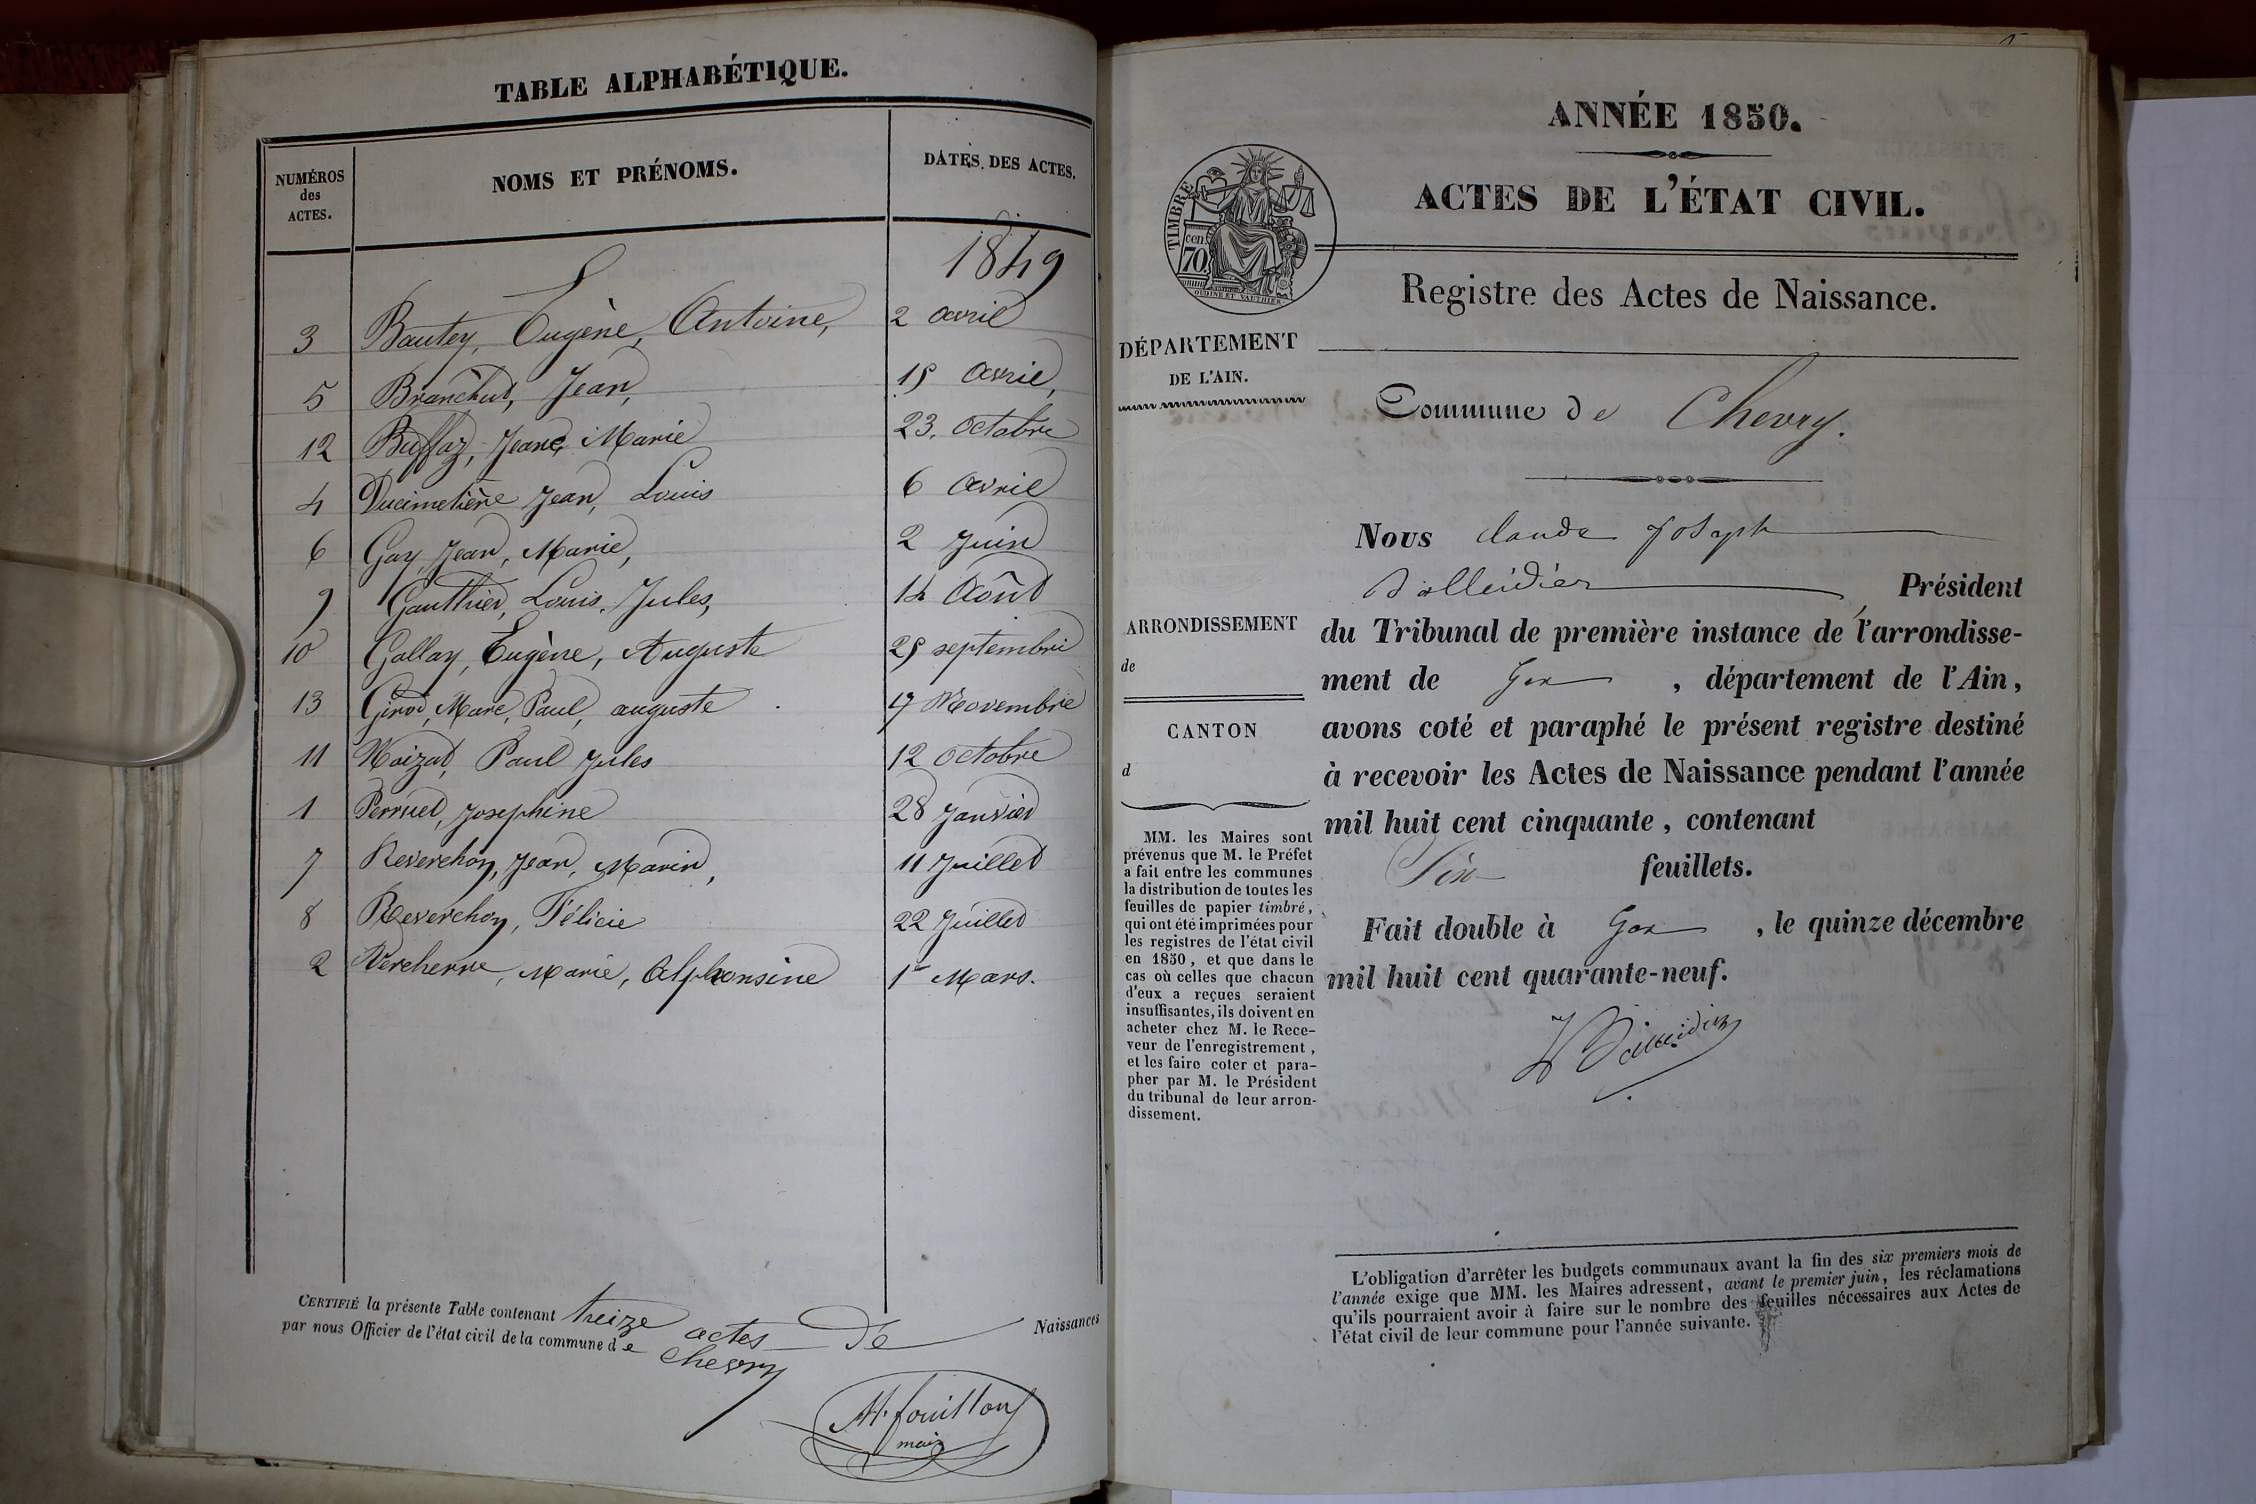 TABLE ALPHABÉTIQUE.
NUMÉROS
des
ACTES.
NOMS ET PRÉNOMS.
DATES DES ACTES.
1849
3 Bautey, Eugène, Antoine, 2 avril
5 Branchut, Jean, 15 avril,
12 Buffaz, Jean, Marie 23. octobre
4 Ducimetière Jean, Louis 6 avril
6 Gay, Jean, Marie, 2 Juin
9 Gauthier, Louis, Jules, 14 Août
10 Gallay, Eugène, Auguste 25 septembre
13 Girod, Marc, Paul, auguste 17 Novembre
11 Noizat, Paul Jules 12 octobre
1 Perruet, Josephine 28 Janvier
7 Reverchon, Jean, Marin, 11 Juillet
8 Reverchon, Félicie 22 Juillet
2 Vercherre, Marie, Alphonsine 1er Mars.
CERTIFIÉ la présente Table contenant treize actes de Naissances
par nous Officier de l'état civil de la commune de Chevry
M. fouillou
maire
ANNÉE 1850.
ACTES DE L'ÉTAT CIVIL.
TIMBRE
cen
70
OUDINE ET VAUTHIER
Registre des Actes de Naissance.
DÉPARTEMENT
DE L'AIN.
Commune de Chevry.
Nous Claude Joseph
, Président
du Tribunal de première instance de l'arrondisse-
ment de Gex , département de l'Ain,
avons coté et paraphé le présent registre destiné
à recevoir les Actes de Naissance pendant l'année
mil huit cent cinquante, contenant
Six feuillets.
Fait double à Gex , le quinze décembre
mil huit cent quarante-neuf.
ARRONDISSEMENT
de
CANTON
d
MM. les Maires sont
prévenus que M. le Préfet
a fait entre les communes
la distribution de toutes les
feuilles de papier timbré,
qui ont été imprimées pour
les registres de l'état civil
en 1850, et que dans le
cas où celles que chacun
d'eux a reçues seraient
insuffisantes, ils doivent en
acheter chez M. le Rece-
veur de l'enregistrement,
et les faire coter et para-
pher par M. le Président
du tribunal de leur arron-
dissement.
L'obligation d'arrêter les budgets communaux avant la fin des six premiers mois de
l'année exige que MM. les Maires adressent, avant le premier juin, les réclamations
qu'ils pourraient avoir à faire sur le nombre des feuilles nécessaires aux Actes de
l'état civil de leur commune pour l'année suivante.